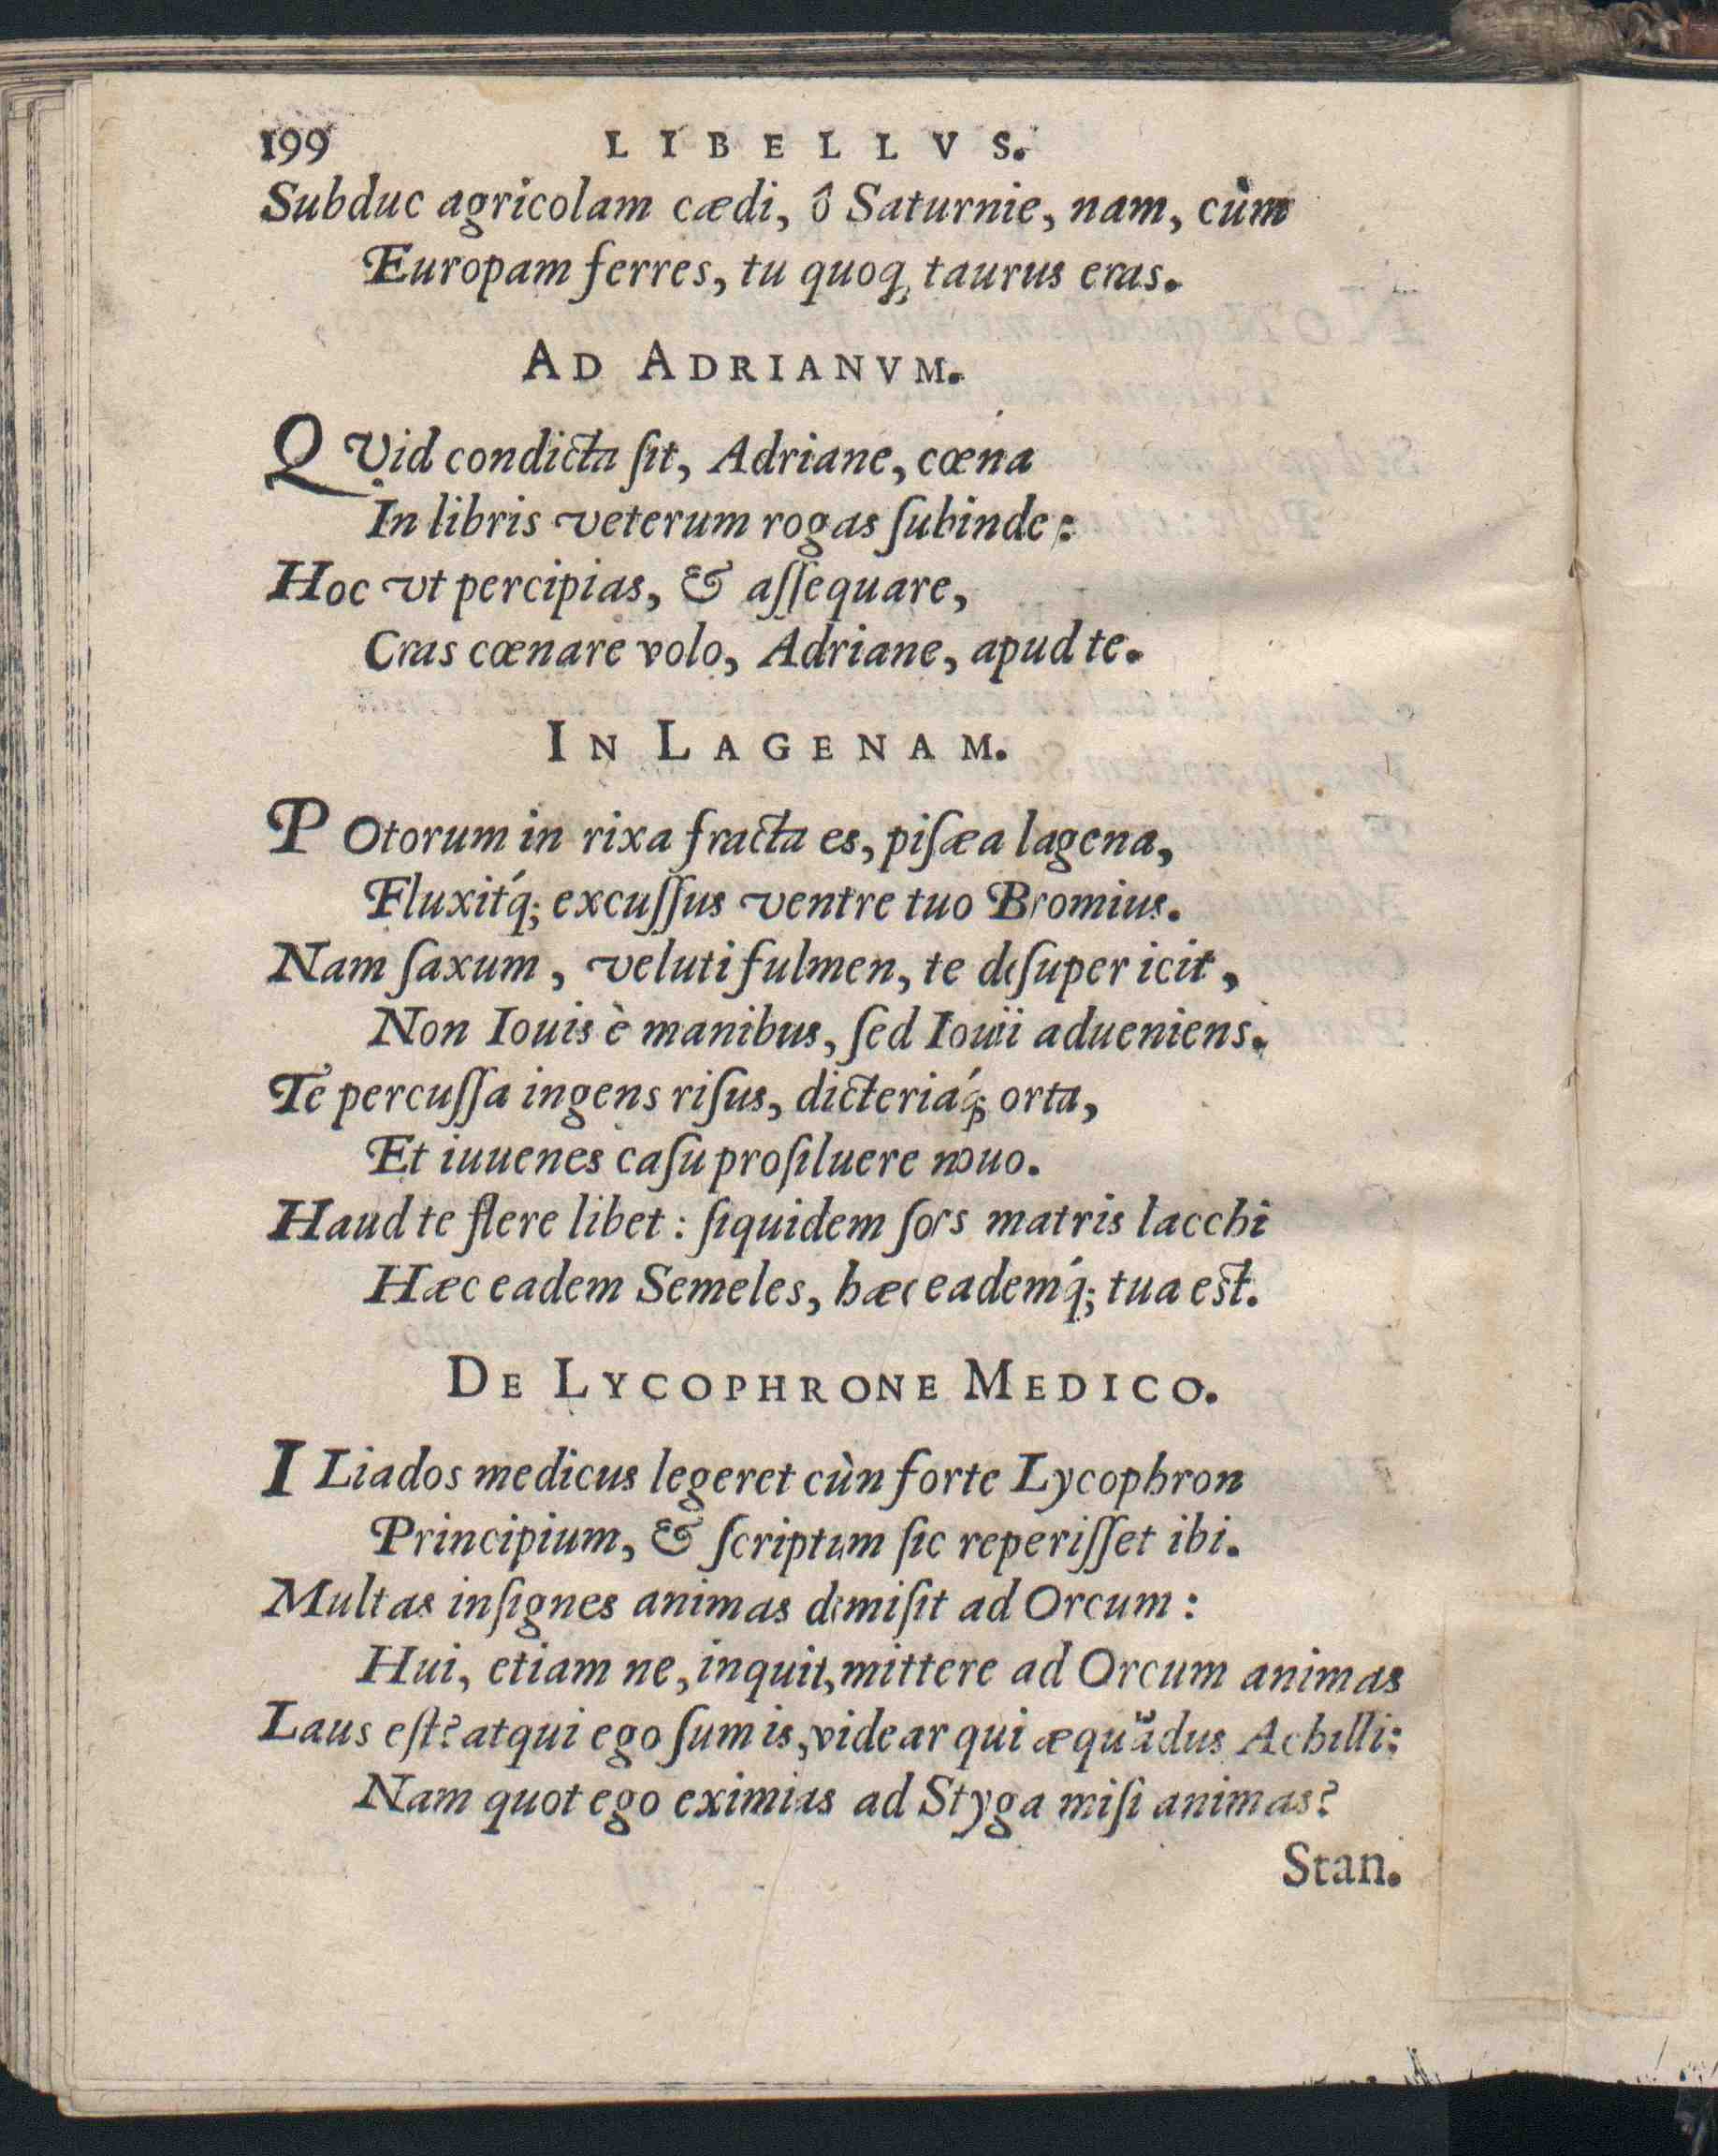 199 LIBELLVS.
Subduc agricolam cædi, ô Saturnie, nam, cùm
Europam ferres, tu quoq; taurus eras.
AD ADRIANVM.
QVid condicta ſit, Adriane, cœna
In libris veterum rogas ſubinde:
Hoc vt percipias, & aſſequare,
Cras cœnare volo, Adriane, apud te.
IN LAGENAM.
POtorum in rixa fracta es, piſæa lagena,
Fluxitq́; excuſſus ventre tuo Bromius.
Nam ſaxum, veluti fulmen, te deſuper icit,
Non Iouis è manibus, ſed Iouii adueniens.
Te percuſſa ingens riſus, dicteriaq́; orta,
Et iuuenes caſu proſiluere nouo.
Haud te flere libet: ſiquidem ſors matris Iacchi
Hæc eadem Semeles, hæc eademq́; tua est.
DE LYCOPHRONE MEDICO.
ILiados medicus legeret cùn forte Lycophron
Principium, & ſcriptum ſic reperiſſet ibi.
Multas inſignes animas dimiſit ad Orcum:
Hui, etiam ne, inquit, mittere ad Orcum animas
Laus eſt? atqui ego ſum is, videar qui æquãdus Achilli:
Nam quot ego eximias ad Styga miſi animas?
Stan.